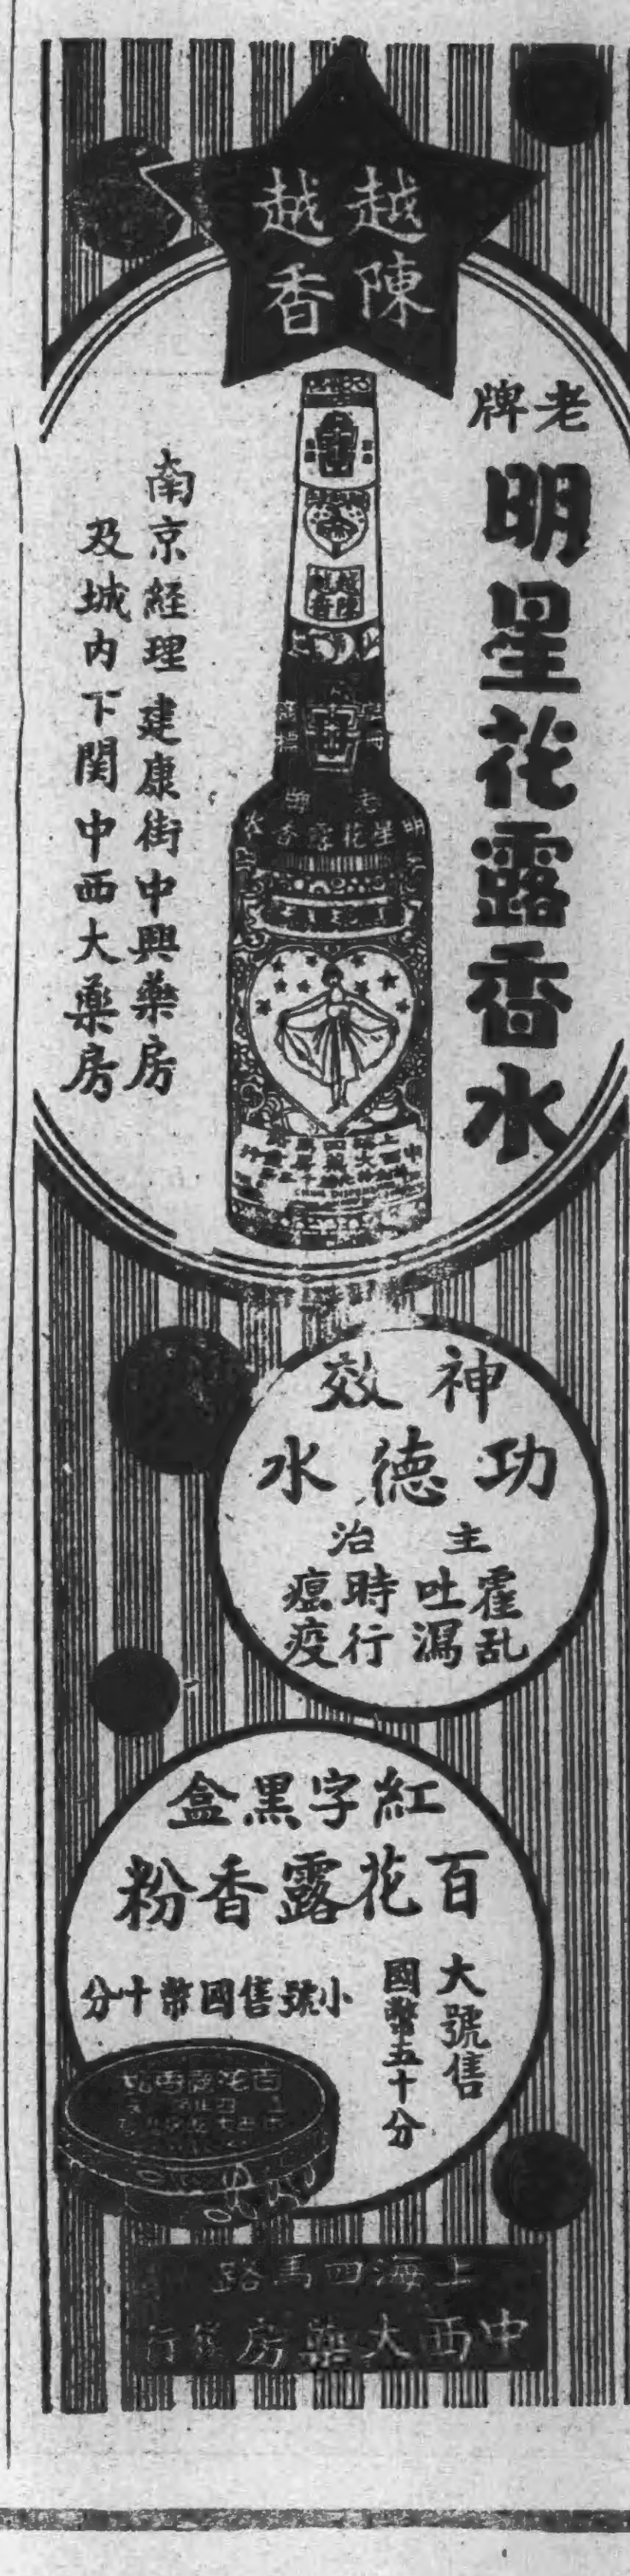 越陳
越香
老牌
明星花露香水
南京經理 建康街中興藥房
及城内下関中西大藥房
越陳
越香
老牌
明星花露香水
神效
功德水
主治
霍乱
吐瀉
時行
瘟疫
紅字黑盒
百花露香粉
大號售
國幣五十分
小號售國幣十分
百花露香粉
上海四馬路
中西大藥房發行